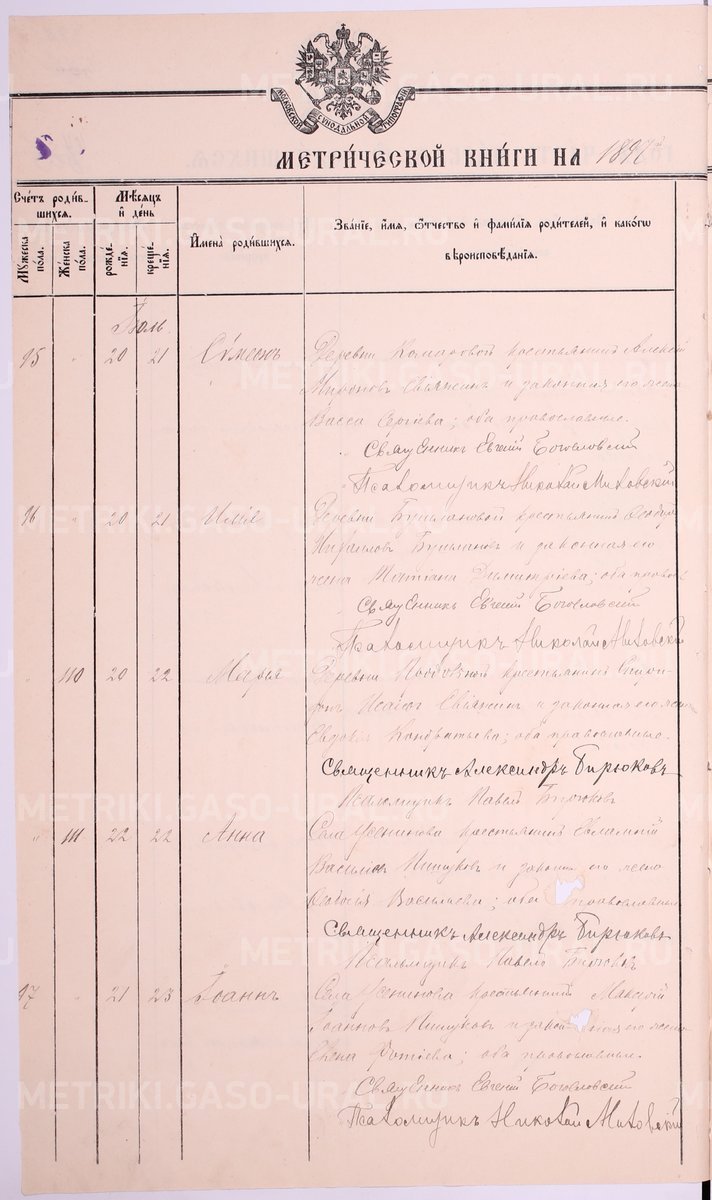 МОСКОВСКОЙ СѴНОДАЛЬНОЙ ТИПОГРАФІИ
МЕТРИ́ЧЕСКОЙ КНИ́ГИ НА 1897
Сче́тъ роди́вшихся.
Мꙋ́жеска по́ла.
Же́нска по́ла.
Мѣ́сяцъ и҆ де́нь
рожде́нїя.
креще́нїя.
И҆мена̀ роди́вшихся.
Зва́нїе, и҆́мя, ѻ҆́тчество и҆ фами́лїя роди́телей, и҆ како́гѡ
вѣроисповѣ́данїя.
Іюль.
95 " 20 21 Сѷмеонъ Деревни Комаровой крестьянинъ Алексій
Мироновъ Свяжинъ и законная его жена
Васса Сергіева; оба православные.
Священникъ Евгеній Богословскій
Псаломщикъ Николай Миловскій
96 " 20 21 Илія Деревни Бушлановой крестьянинъ Ѳеодоръ
Бушлановъ и законная его
жена Татіана Димитріева; оба правосл.
Священникъ Евгеній Богословскій
Псаломщикъ Николай Миловскій
" 110 20 22 Марія Деревни крестьянинъ Спири-
донъ Исаевъ Свяжинъ и законная его жена
Евдокія Кондратьева; оба православные.
Священникъ Александръ Бирюковъ
Псаломщикъ Павелъ Бирюковъ
" 111 22 22 Анна Села крестьянинъ
Василіевъ Пищуковъ и законн. его жена
Ѳеодосія Васильева; оба православные
Священникъ Александръ Бирюковъ
Псаломщикъ Павелъ Бирюковъ
97 " 21 23 Іоаннъ Села крестьянинъ Максимъ
Іоанновъ Пищуковъ и законная его жена
Елена Фотіева; оба православные.
Священникъ Евгеній Богословскій
Псаломщикъ Николай Миловскій
METRIKI.GASO-URAL.RU